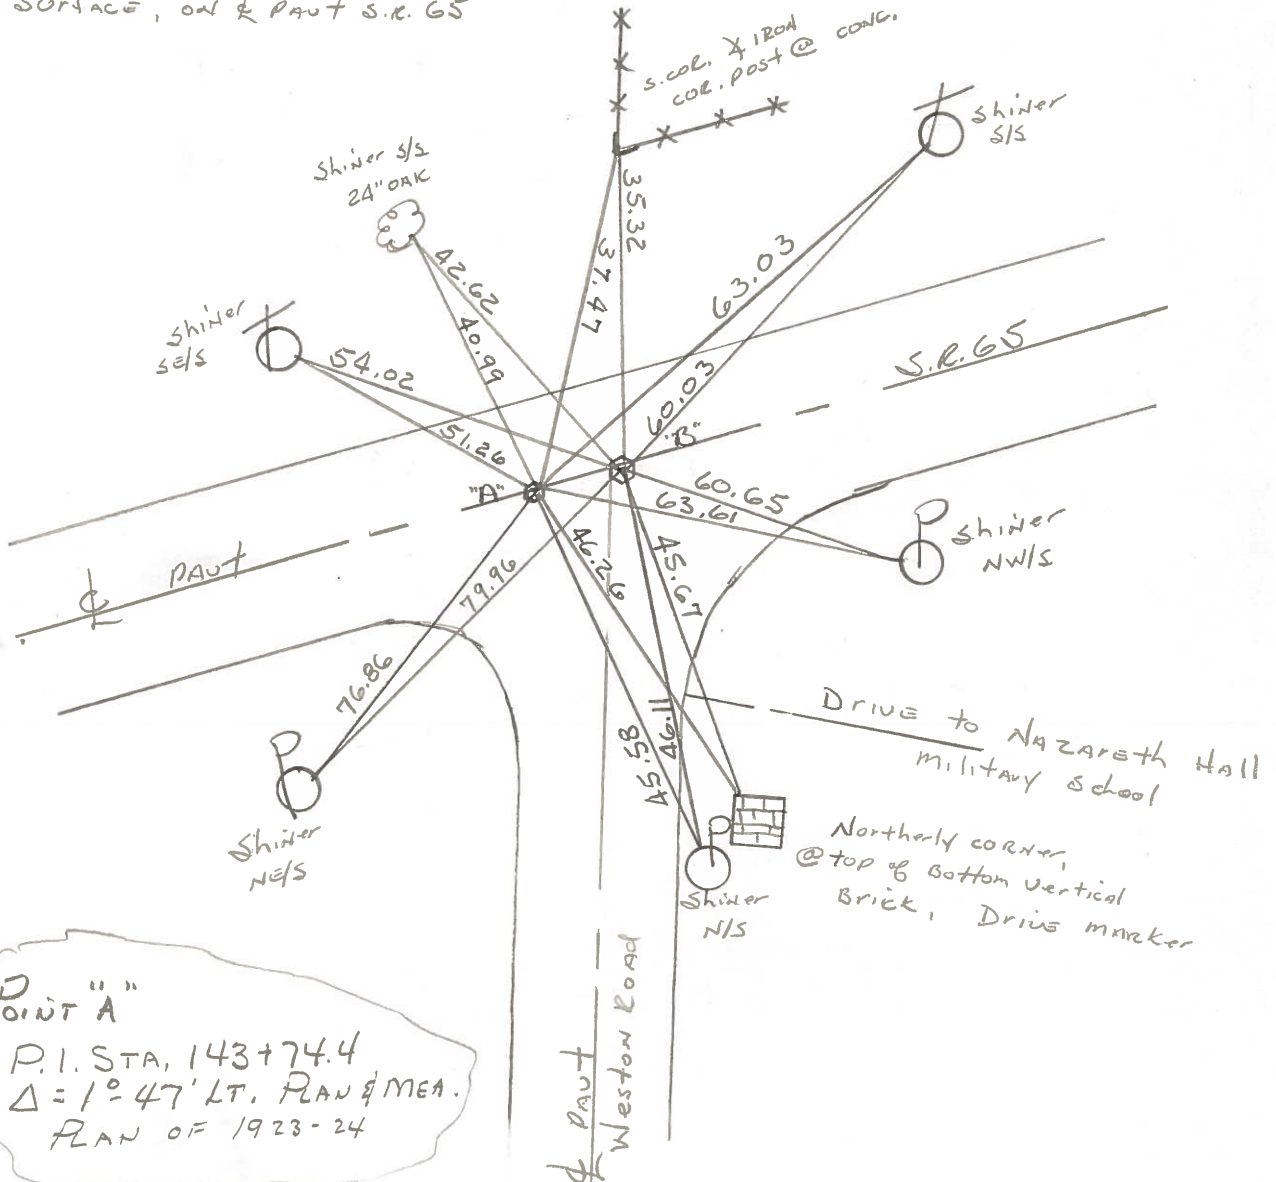 SURFACE, ON ℄ PAVT S.R. 65
S. COR. 4 IRON
COR. POST @ CONC.
Shiner
S/S
Shiner S/S
24" OAK
35.32
37.47
63.03
42.62
40.99
Shiner
SE/S
54.02
51.26
60.03
S.R. 65
"B"
"A"
60.65
63.61
Shiner
NW/S
℄ PAVT
46.26
45.67
79.96
76.86
46.11
45.58
DRIVE to NAZARETH HALL
military School
Shiner
NE/S
Northerly corner,
@ top of Bottom vertical
Brick, Drive marker
Shiner
N/S
POINT "A"
P.I. STA. 143+74.4
Δ = 1°-47' LT. PLAN & MEA.
PLAN OF 1923-24
℄ PAVT
Weston Road